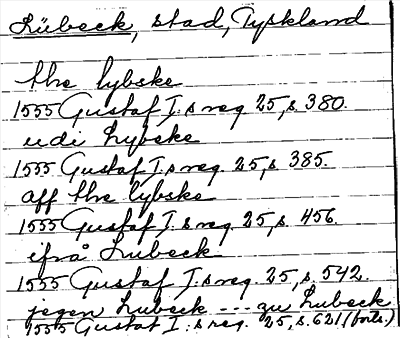 Lübeck, stad, Tyskland
the lybske
1555 Gustaf I:s reg. 25, s. 380.
udi Lybeke
1555 Gustaf I:s reg. 25, s. 385.
aff the lybske
1555 Gustaf I:s reg. 25, s. 456.
ifrå Lubeck
1555 Gustaf I:s reg. 25, s. 542.
jegen Lubeck --- zu Lubeck
1555 Gustaf I:s reg. 25, s. 621 (forts.)